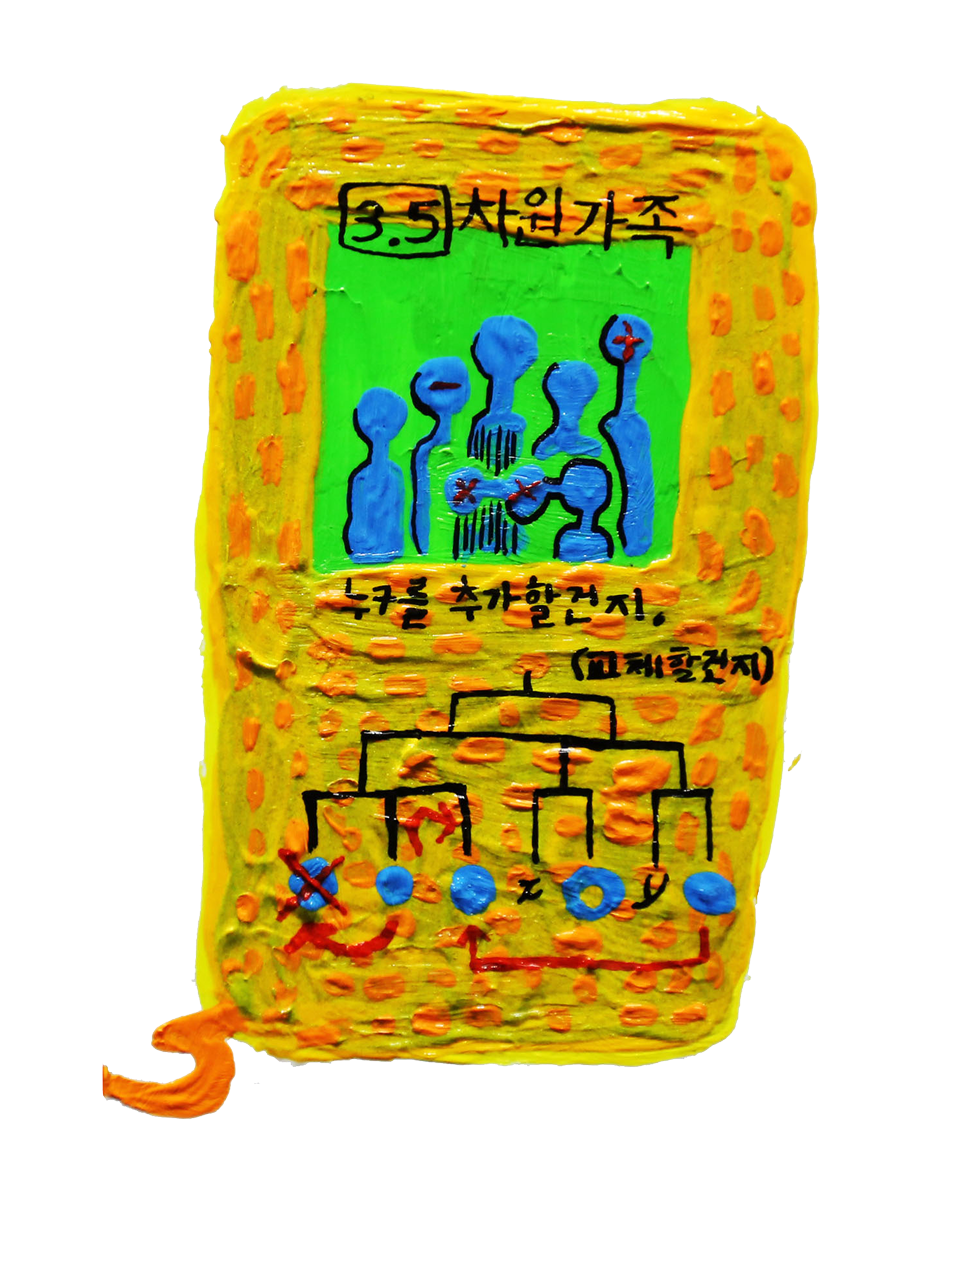 3.5 차원가족
누구를 추가할건지.
(교체할건지)
x y